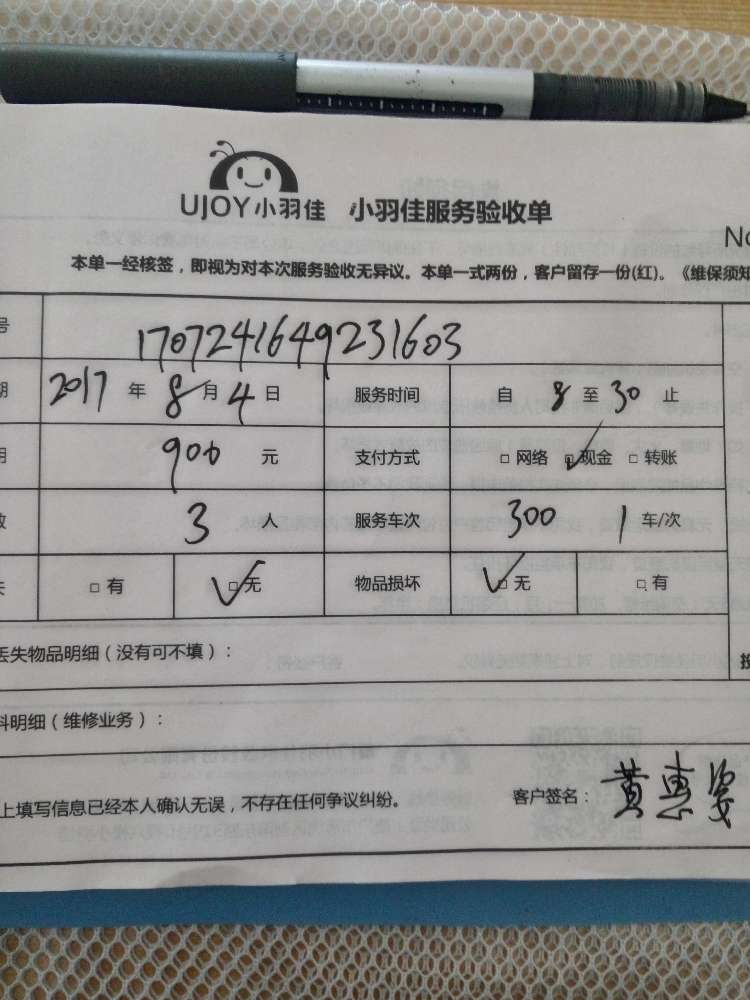 UJOY小羽佳 小羽佳服务验收单
No
本单一经核签，即视为对本次服务验收无异议。本单一式两份，客户留存一份(红)。《维保须知
号 1707241649231603
期 2017 年 8 月 4 日 服务时间 自 8 至 30 止
用 900 元 支付方式 □ 网络 □ 现金 □ 转账
数 3 人 服务车次 300 1 车/次
失 □ 有 □ 无 物品损坏 □ 无 □ 有
丢失物品明细（没有可不填）： 投
料明细（维修业务）：
上填写信息已经本人确认无误，不存在任何争议纠纷。 客户签名： 黄惠